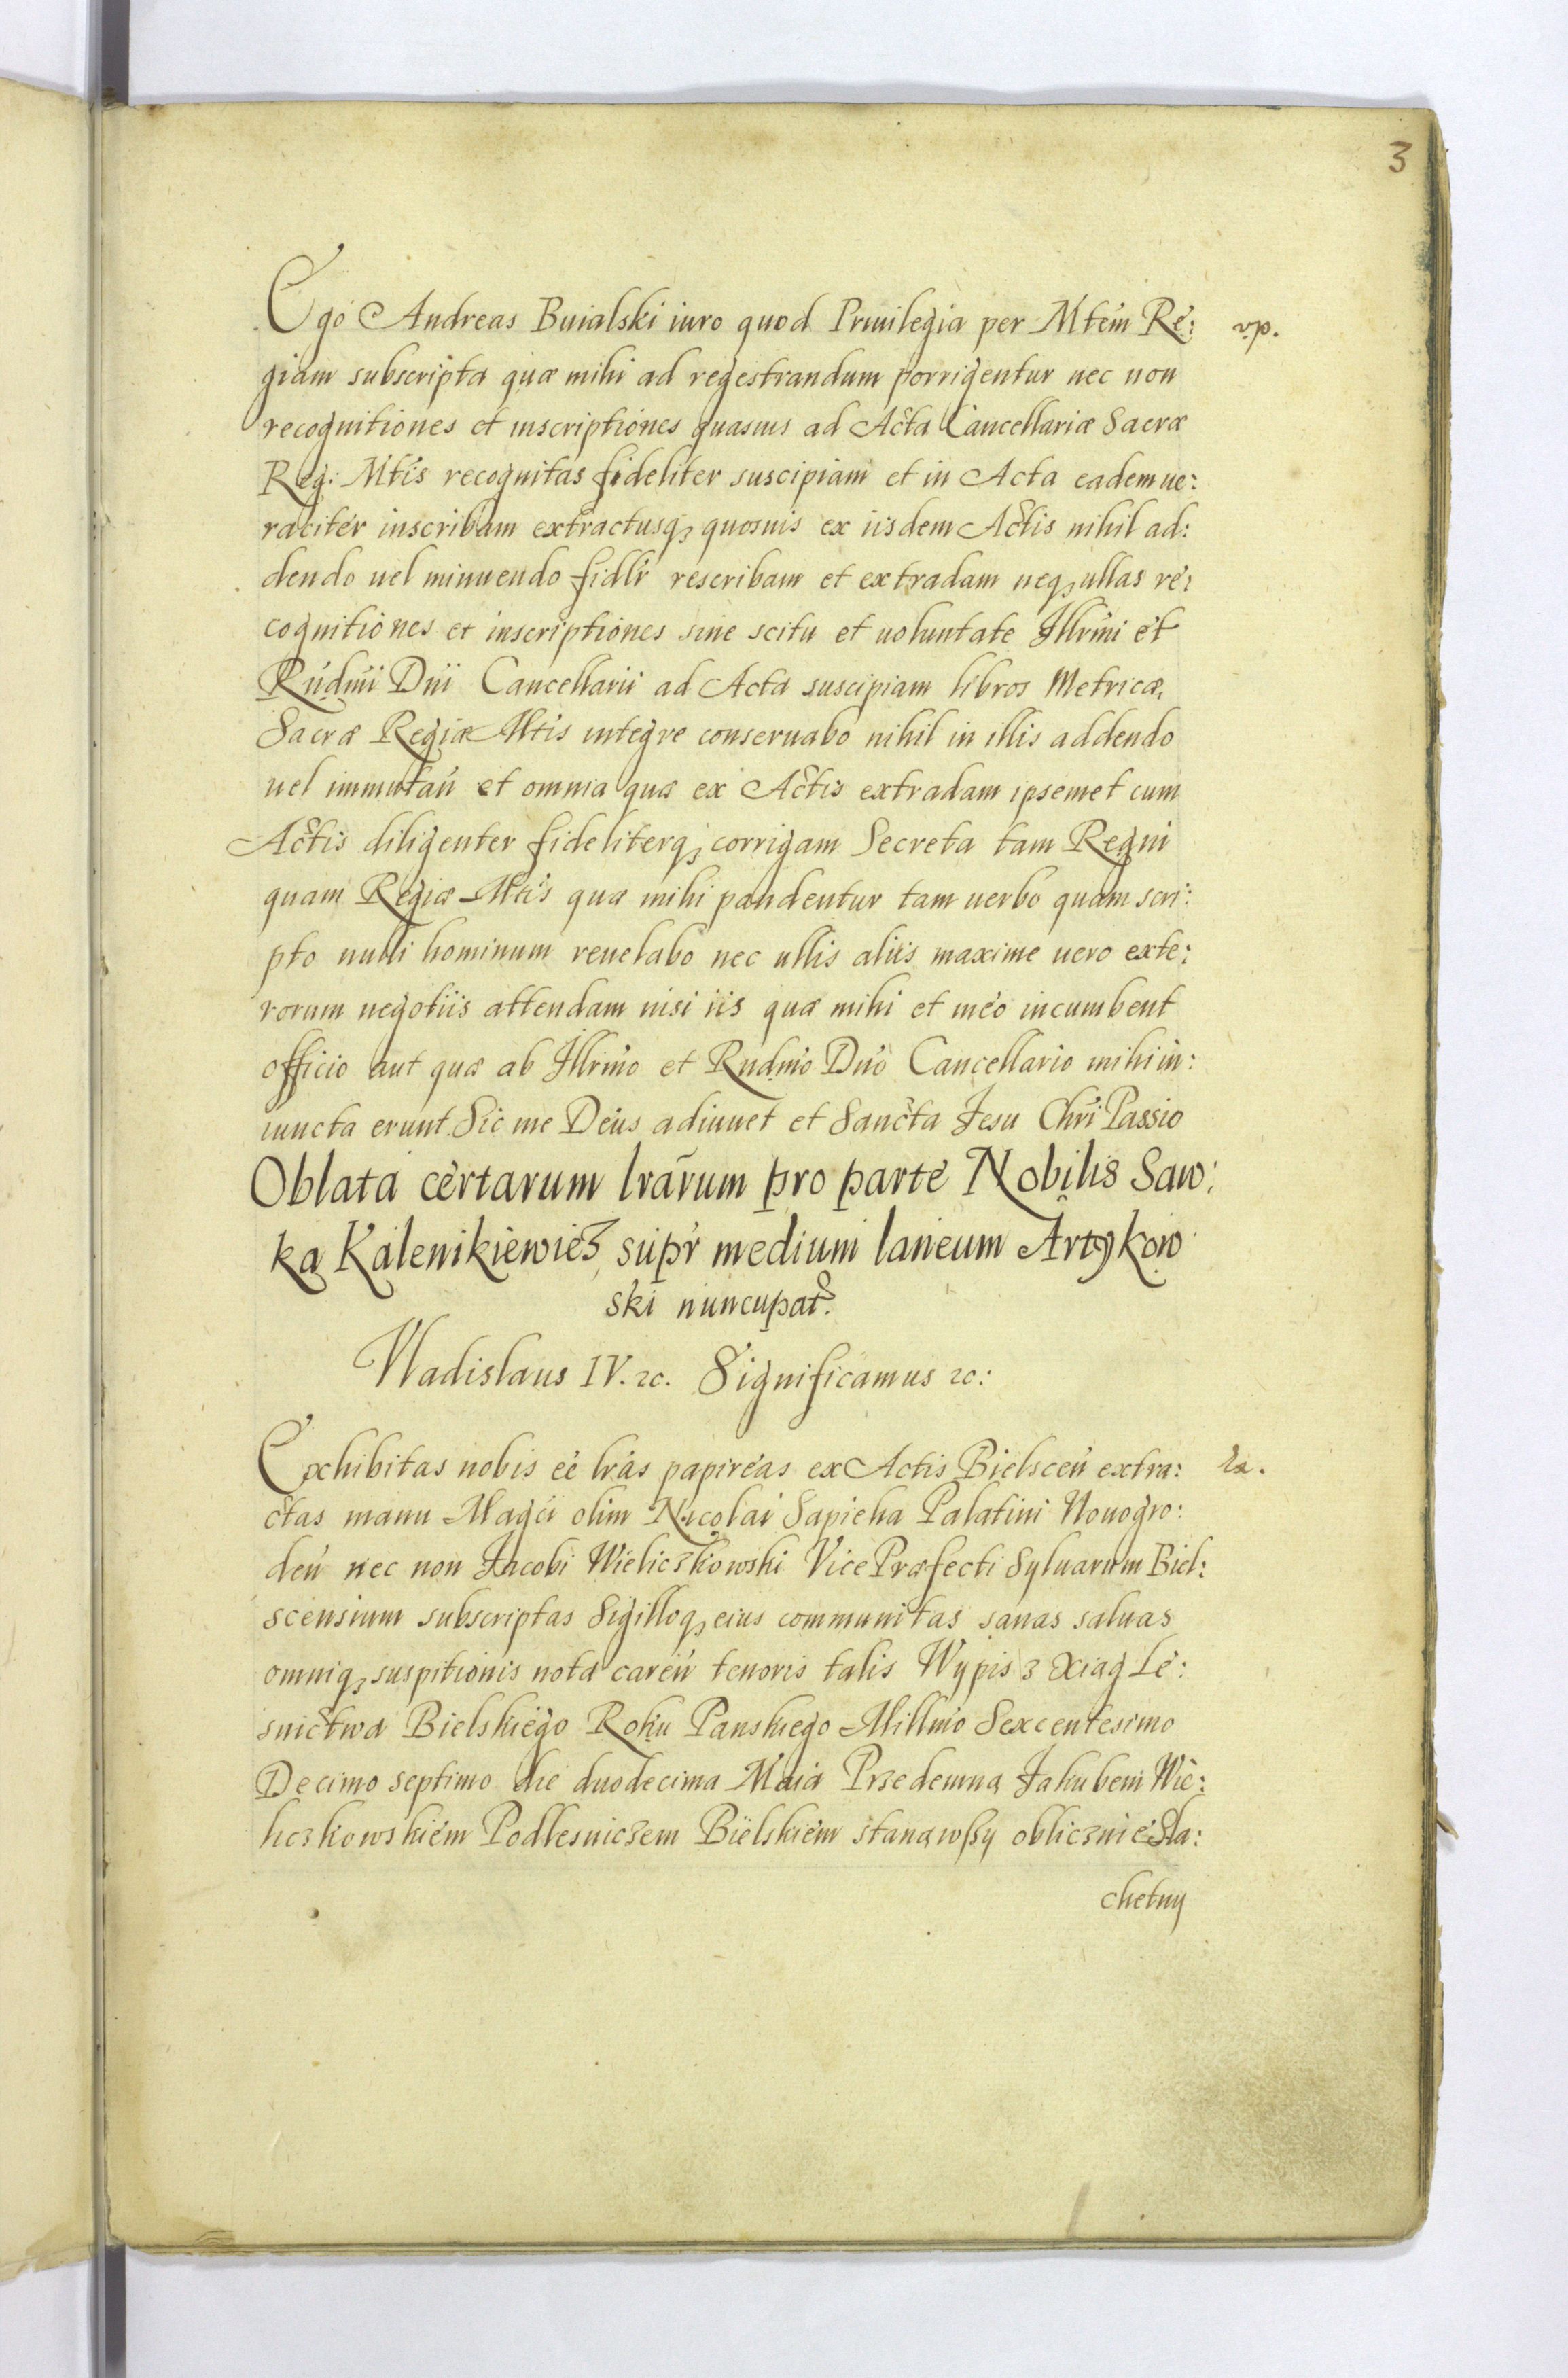 3
Ego Andreas Buialski iuro quod Priuilegia per Mtem Re:
vp.
giam subscripta quæ mihi ad regestrandum porrigentur nec non
recognitiones et inscriptiones quasuis ad Acta Cancellariæ Sacræ
Reg: Mtis recognitas fideliter suscipiam et in Acta eadem ue:
raciter inscribam extractusq₃ quosuis ex iisdem Actis nihil ad:
dendo uel minuendo fidlr rescribam et extradam neq₃ ullas re:
cognitiones et inscriptiones sine scitu et uoluntate Illrmi et
Rudmi Dni Cancellarii ad Acta suscipiam libros Metricæ,
Sacræ Regiæ Mtis integre conseruabo nihil in illis addendo
uel immutan̄ et omnia quæ ex Actis extradam ipsemet cum
Actis diligenter fideliterq₃ corrigam Secreta tam Regni
quam Regiæ Mtis quæ mihi pandentur tam uerbo quam scri:
pto nulli hominum reuelabo nec ullis aliis maxime uero exte:
rorum negotiis attendam nisi iis quæ mihi et meo incumbent
officio aut quæ ab Illrmo et Rudmo Dno Cancellario mihi in:
iuncta erunt. Sic me Deus adiuuet et Sancta Jesu Chri Passio
Oblata certarum lrarum pro parte Nobilis Saw:
ka Kalenikiewicz supr medium laneum Artykow
ski nuncupat.
Vladislaus IV. ꝛc. Significamus ꝛc:
Exhibitas nobis ee lras papireas ex Actis Bielscen̄ extra:
ctas manu Magci olim Nicolai Sapieha Palatini Nouogro:
den̄ nec non Jacobi Wieliczkowski Vice Præfecti Syluarum Biel:
scensium subscriptas Sigilloq₃ eius communitas sanas saluas
omniq₃ suspitionis nota caren̄ tenoris talis Wypis z Xiag Le:
snictwa Bielskiego Roku Panskiego Millmo Sexcentesimo
Decimo septimo die duodecima Maia Przedemną Jakubem Wie:
liczkowskiem Podlesniczem Bielskiem stanąwszy oblicznie Sla:
chetny